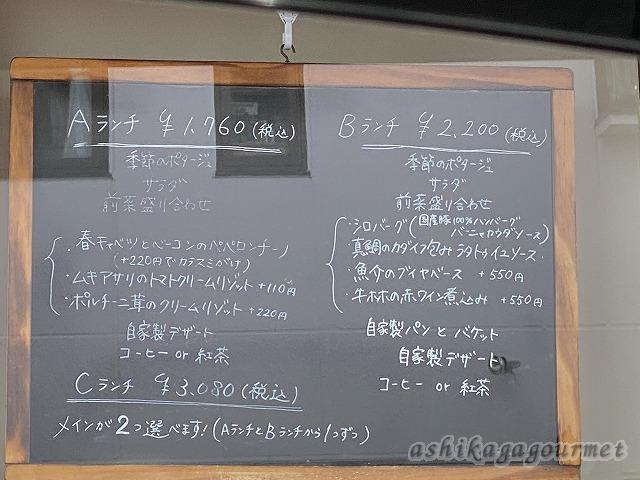 Aランチ ¥1,760(税込)
季節のポタージュ
サラダ
前菜盛り合わせ
・春キャベツとベーコンのペペロンチーノ
(+220円でカラスミがけ)
・ムキアサリのトマトクリームリゾット +110円
・ポルチーニ茸のクリームリゾット +220円
自家製デザート
コーヒー or 紅茶
Bランチ ¥2,200(税込)
季節のポタージュ
サラダ
前菜盛り合わせ
・シロバーグ(国産豚100%ハンバーグ
バーニャカウダソース)
・真鯛のカダイフ包み ラタトゥイユソース
・魚介のブイヤベース +550円
・牛ホホの赤ワイン煮込み +550円
自家製パンとバケット
自家製デザート
コーヒー or 紅茶
Cランチ ¥3,080(税込)
メインが2つ選べます!(AランチとBランチから1つずつ)
ashikagagourmet